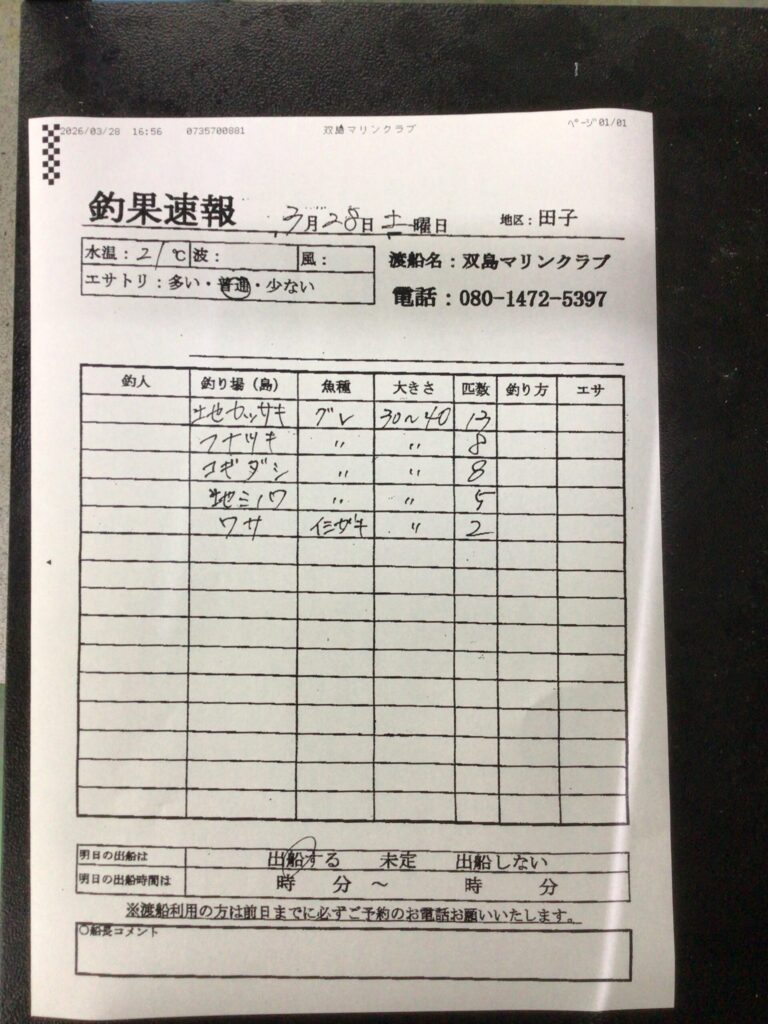 2026/03/28 16:56 0735700881 双島マリンクラブ ﾍﾟｰｼﾞ 01/01
釣果速報 3月28日 土曜日 地区：田子
水温：21℃ 波： 風：
エサトリ：多い・普通・少ない
渡船名：双島マリンクラブ
電話：080-1472-5397
釣人 釣り場（島） 魚種 大きさ 匹数 釣り方 エサ
地カッサキ グレ 30～40 13
フナツキ 〃 〃 8
コギダシ 〃 〃 8
地ミノワ 〃 〃 5
ワサ イミザキ 〃 2
明日の出船は 出船する 未定 出船しない
明日の出船時間は 時 分 ～ 時 分
※渡船利用の方は前日までに必ずご予約のお電話お願いいたします。
○船長コメント